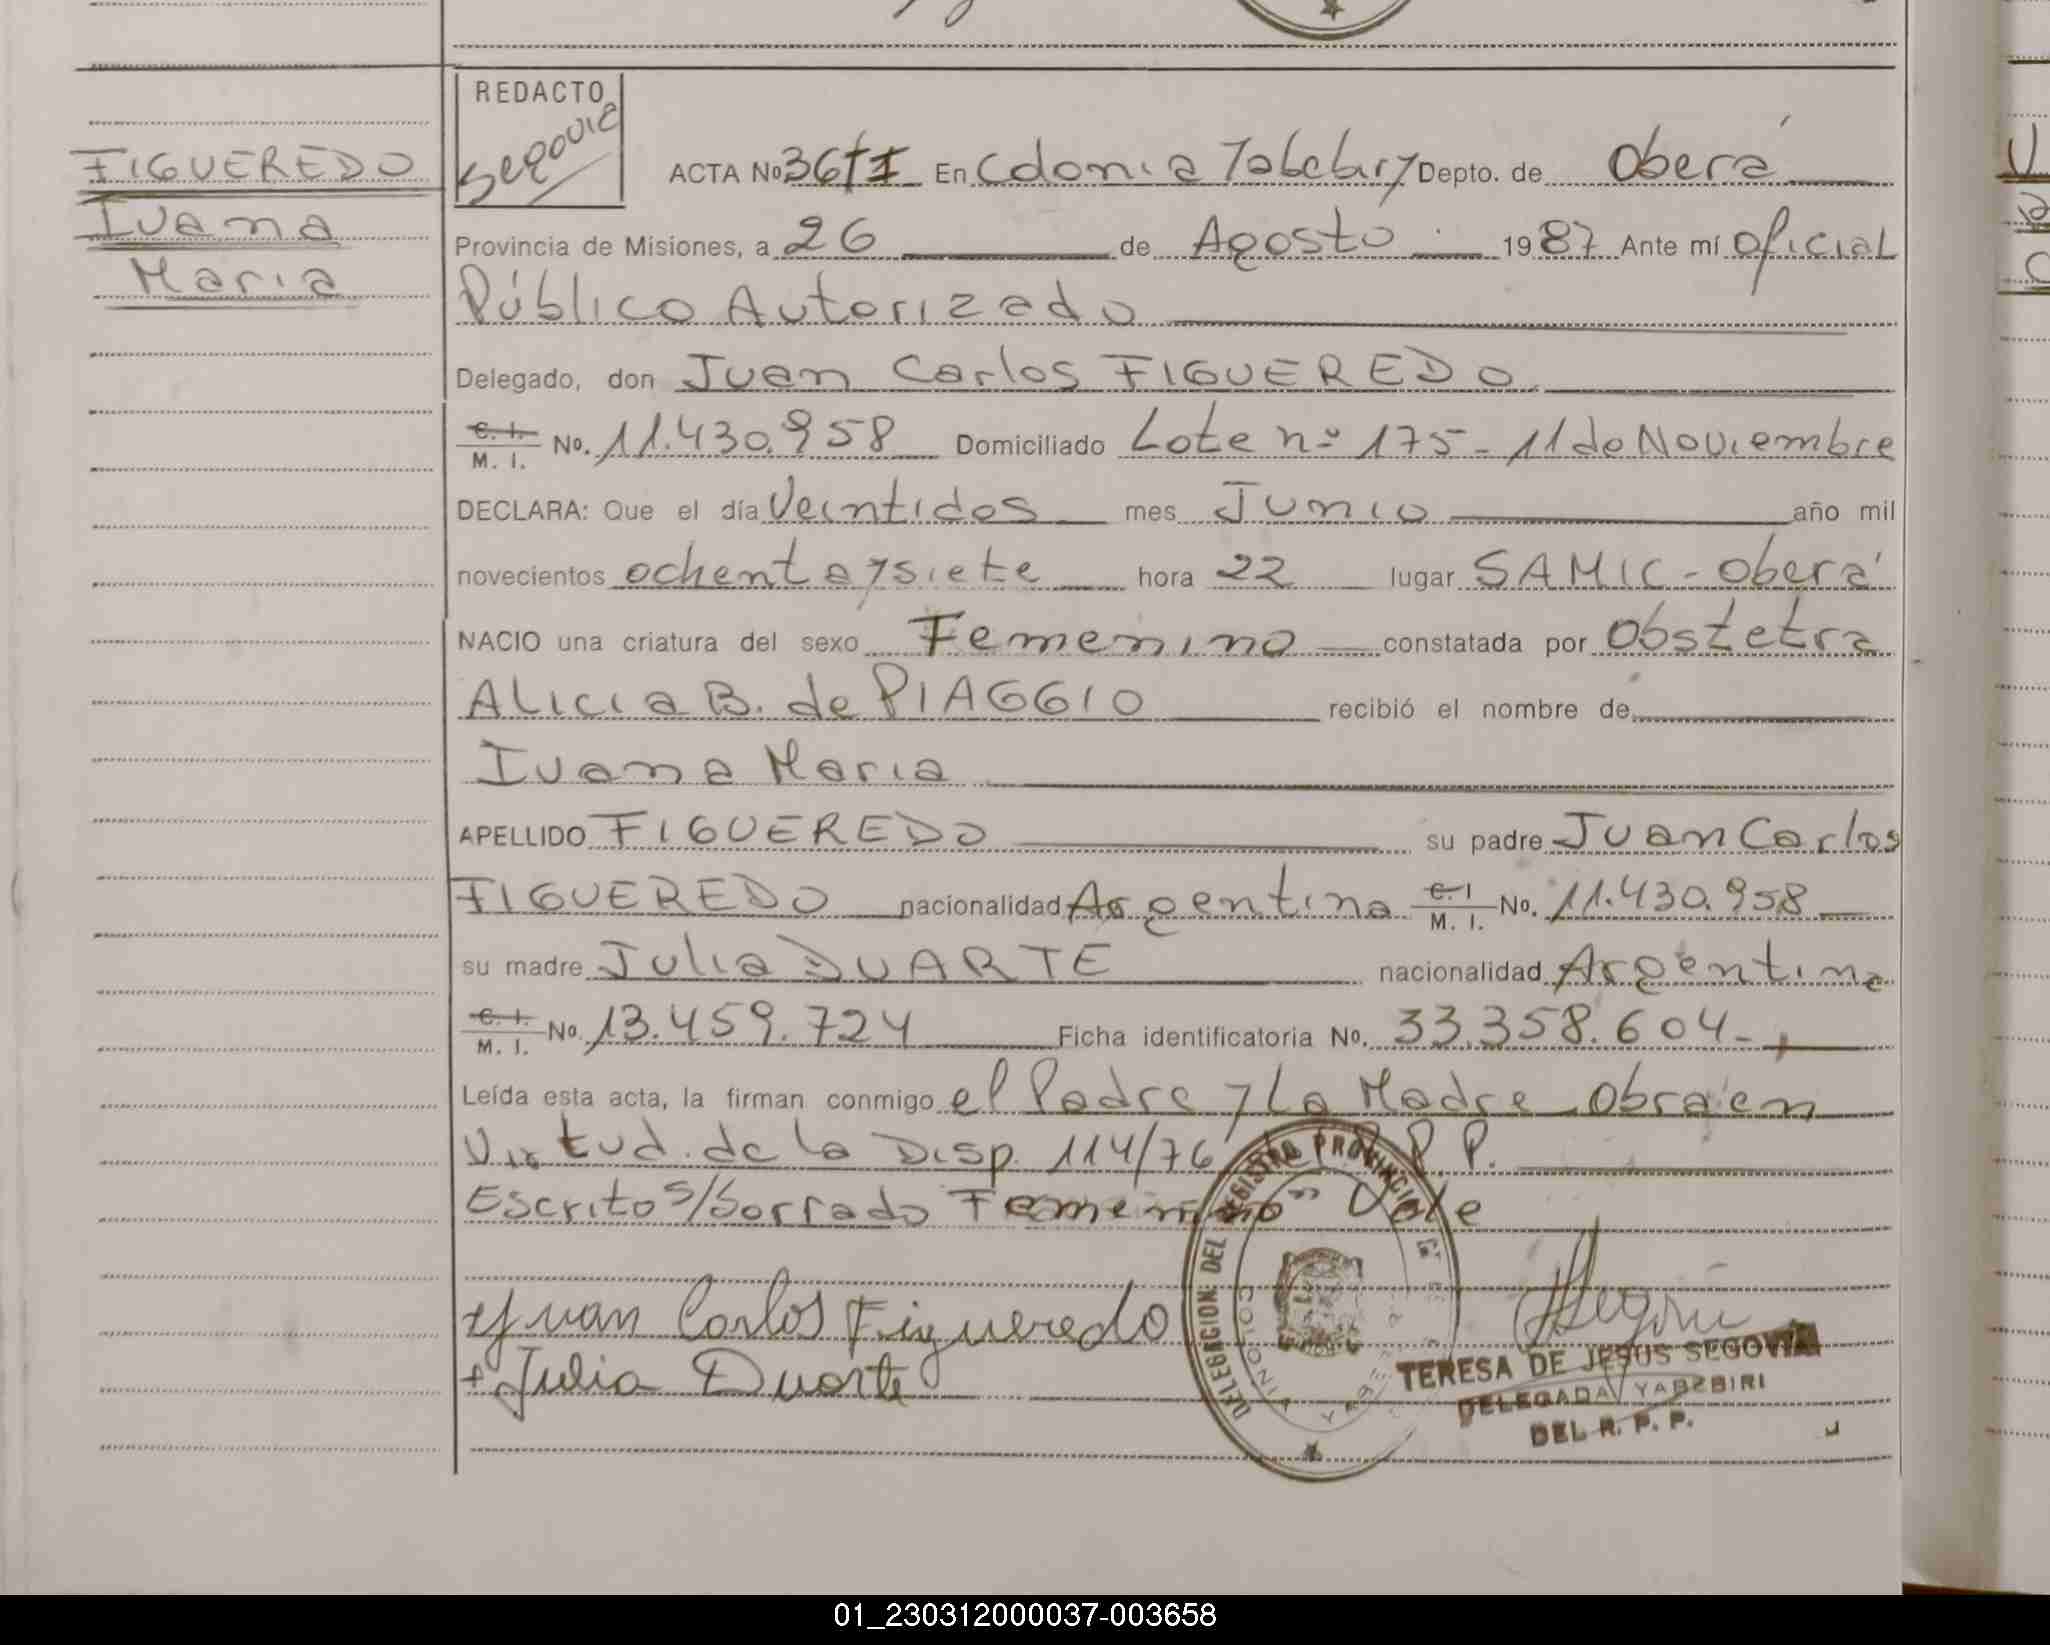 REDACTO
Segovia
FIGUEREDO
Ivana
Maria
ACTA No 36 T I En Colonia Yabebiry Depto. de Oberá
Provincia de Misiones, a 26 de Agosto 1987 Ante mí oficial
Público Autorizado
Delegado, don Juan Carlos FIGUEREDO
C. I. M. I. No. 11.430.958 Domiciliado Lote nº 175 - 11 de Noviembre
DECLARA: Que el día Veintidos mes Junio año mil
novecientos ochenta y siete hora 22 lugar SAMIC - Oberá
NACIO una criatura del sexo Femenino constatada por Obstetra
Alicia B. de PIAGGIO recibió el nombre de
Ivana Maria
APELLIDO FIGUEREDO su padre Juan Carlos
FIGUEREDO nacionalidad Argentina C. I M. I. No. 11.430.958
su madre Julia DUARTE nacionalidad Argentina
C. I. M. I. No. 13.459.724 Ficha identificatoria No. 33.358.604-
Leída esta acta, la firman conmigo el Padre y La Madre obra en
Virtud de la Disp. 114/76 R. P. P.
Escrito s/borrado Femenino" Vale
Juan Carlos Figueredo
Julia Duarte
DELEGACION DEL REGISTRO PROVINCIAL
TERESA DE JESUS SEGOVIA
DELEGADA YABEBIRI
DEL R. P. P.
01_230312000037-003658